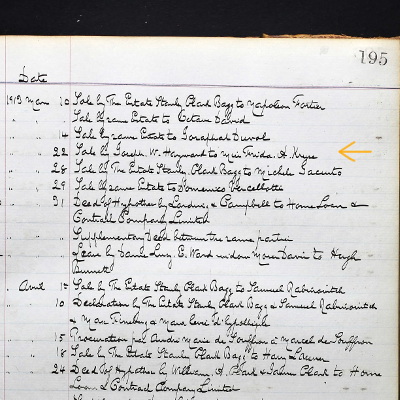 195
Date
1913 Mar 10 Sale by The Estate Stanley Clark Bagg to Napoleon Fortier
" " " Sale by same Estate to Octave David
" " 14 Sale by same Estate to Duval
" " 22 Sale by Joseph W. Hayward to Miss Frida. A. Kruse
" " 28 Sale by The Estate Stanley Clark Bagg to Michele
" " 29 Sale by same Estate to Domenico Vercellotti
" " 31 Deed of Hypothec by & Campbell to Home Loan &
Contract Company Limited
" " " Supplementary Deed between the same parties
" " " Lease by Dame Lucy E. Ward widow Davis to Hugh
Burnett
" April 1st Sale by The Estate Stanley Clark Bagg to Samuel Rabinovitch
" " 10 Declaration by The Estate Stanley Clark Bagg & Samuel Rabinovitch
& Max & more
" " 15 Procuration par André Marie de to Marcel de
" " 18 Sale by The Estate Stanley Clark Bagg to Harry
" " 24 Deed of Hypothec by William. A. Clark & Clark to Home
Loan & Contract Company Limited